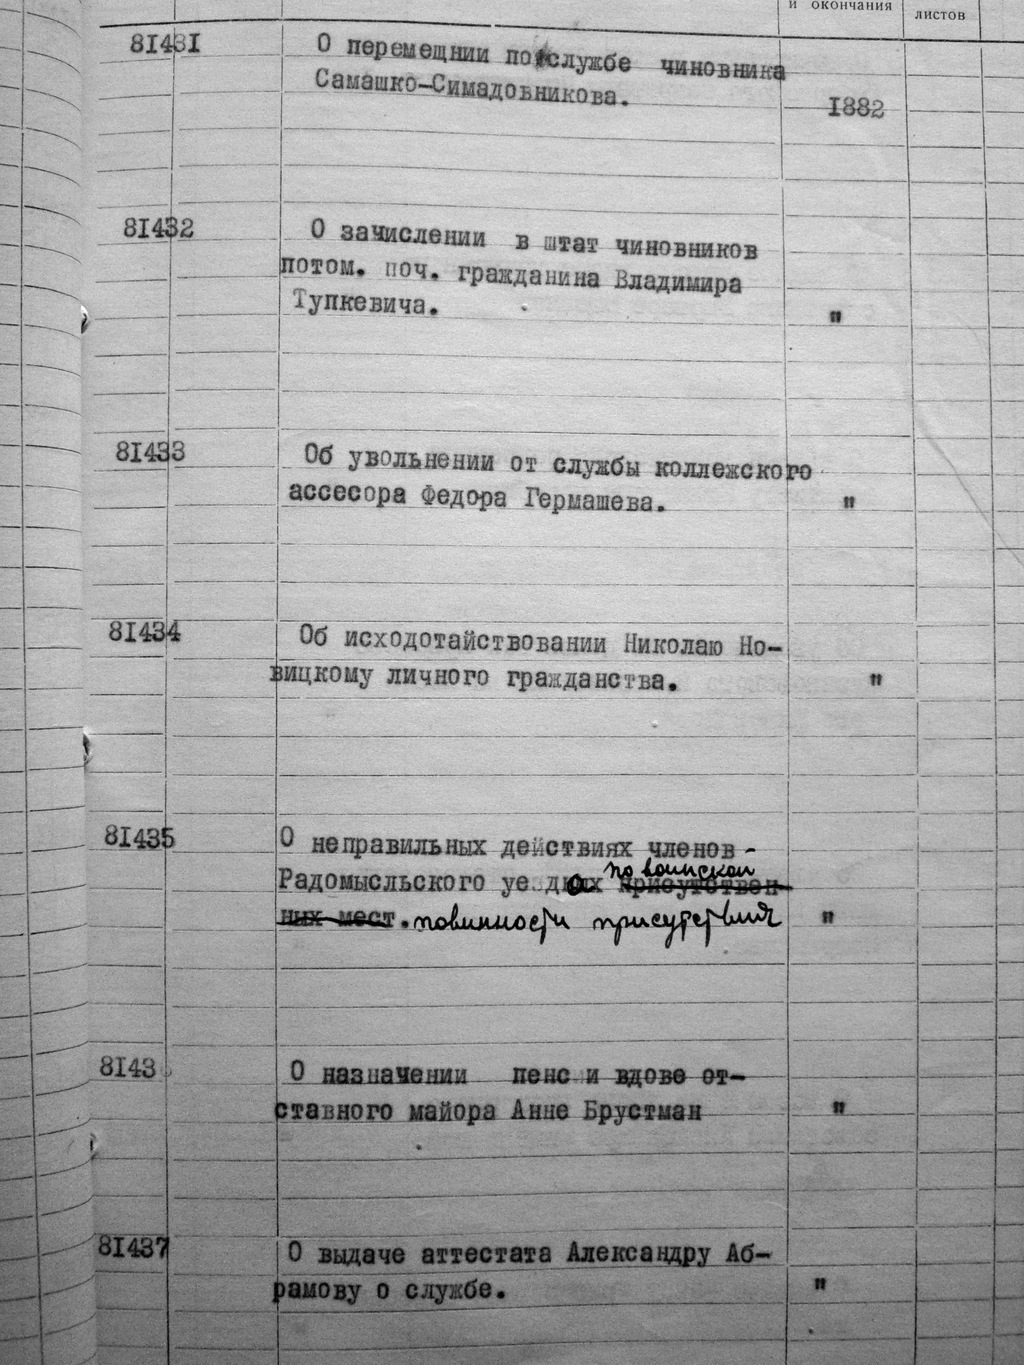 и окончания
листов
81431 О перемещнии по службе чиновника
Самашко-Симадовникова.
1882
81432 О зачислении в штат чиновников
потом. поч. гражданина Владимира
Тупкевича. "
81433 Об увольнении от службы коллежского
ассесора Федора Гермашева. "
81434 Об исходотайствовании Николаю Но-
вицкому личного гражданства. "
81435 О неправильных действиях членов -
по воинской
Радомысльского уе присутствен-
ных мест. повинности присутствия "
8143 О назначении пенс и вдове от-
ставного майора Анне Брустман "
81437 О выдаче аттестата Александру Аб-
рамову о службе. "